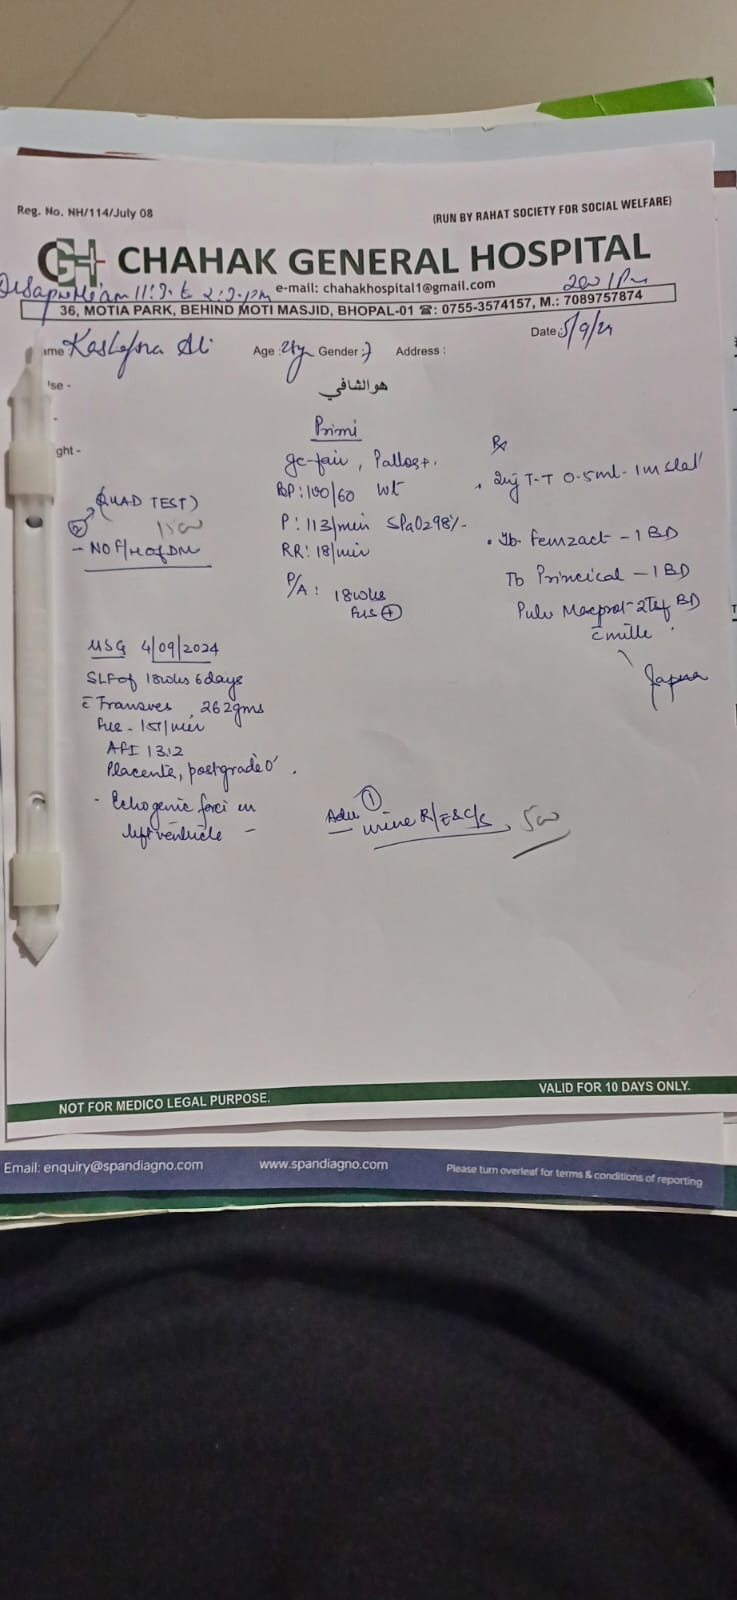 Reg. No. NH/114/July 08
(RUN BY RAHAT SOCIETY FOR SOCIAL WELFARE)
GH CHAHAK GENERAL HOSPITAL
e-mail: chahakhospital1@gmail.com
36, MOTIA PARK, BEHIND MOTI MASJID, BHOPAL-01 ☎: 0755-3574157, M.: 7089757874
Date: 5/9/24
ame Ali
Age : Gender : Address :
lse -
هو الشافي
-
ght -
Primi
gc-fair, Pallor+.
BP: 100/60 wt
P: 113/min SPaO2 98%
RR: 18/min
P/A: 18wks
FHS +
(QUAD TEST)
2 1500
- NO F/H of DM
USG 4/09/2024
SLF of 18wks 6days
c Transves, 262gms
151/min
AFI 13.2
Placenta, post grade 0'.
- Echogenic foci in
left ventricle -
Rx
. Inj T-T 0.5ml - 1m stat
. Tb. Femzact - 1 BD
Tb - 1 BD
Pulv - 2Tsf BD
c milk
Adv 1
urine R/E & C/S, 500
NOT FOR MEDICO LEGAL PURPOSE.
VALID FOR 10 DAYS ONLY.
Email: enquiry@spandiagno.com www.spandiagno.com Please turn overleaf for terms & conditions of reporting